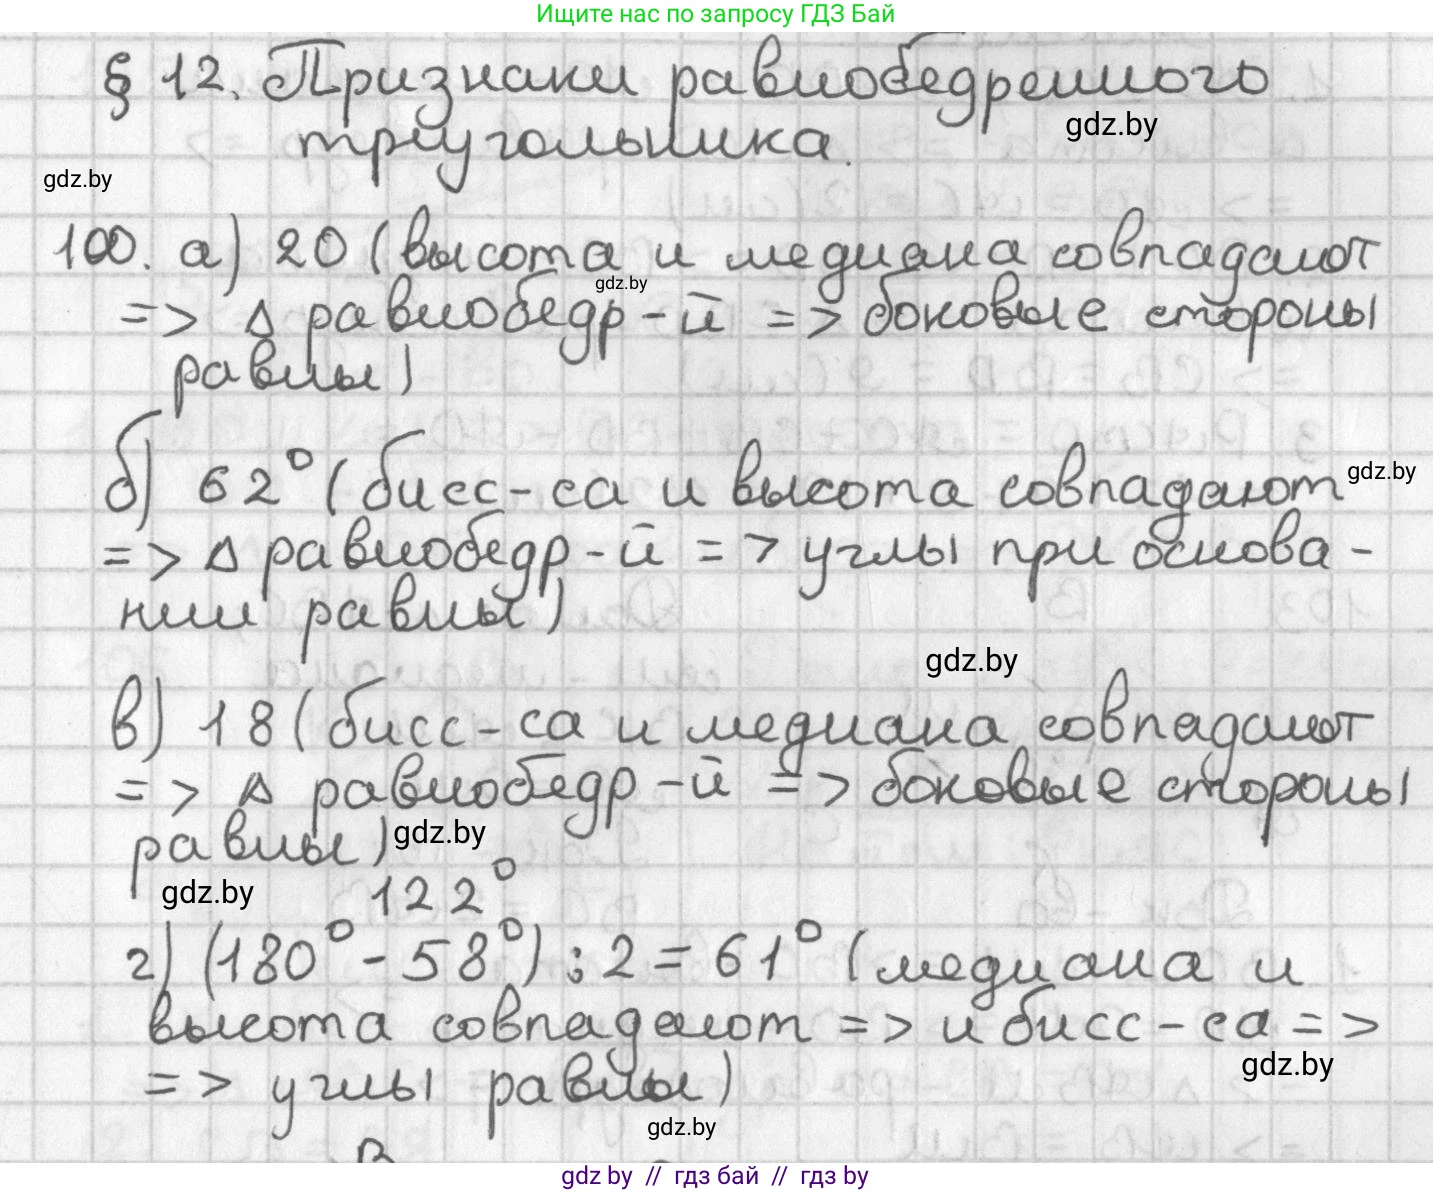 Ищите нас по запросу ГДЗ Бай
§ 12. Признаки равнобедренного
треугольника.
gdz.by
gdz.by
100. а) 20 (высота и медиана совпадают
gdz.by
=> Δ равнобедр-й => боковые стороны
равны)
б) 62° (бисс-са и высота совпадают
gdz.by
=> Δ равнобедр-й => углы при основа-
нии равны)
gdz.by
в) 18 (бисс-са и медиана совпадают
=> Δ равнобедр-й => боковые стороны
равны)
gdz.by
gdz.by
122°
г) (180° - 58°) : 2 = 61° (медиана и
высота совпадают => и бисс-са =>
gdz.by
=> углы равны)
gdz.by
gdz.by // гдз бай // gdz.by